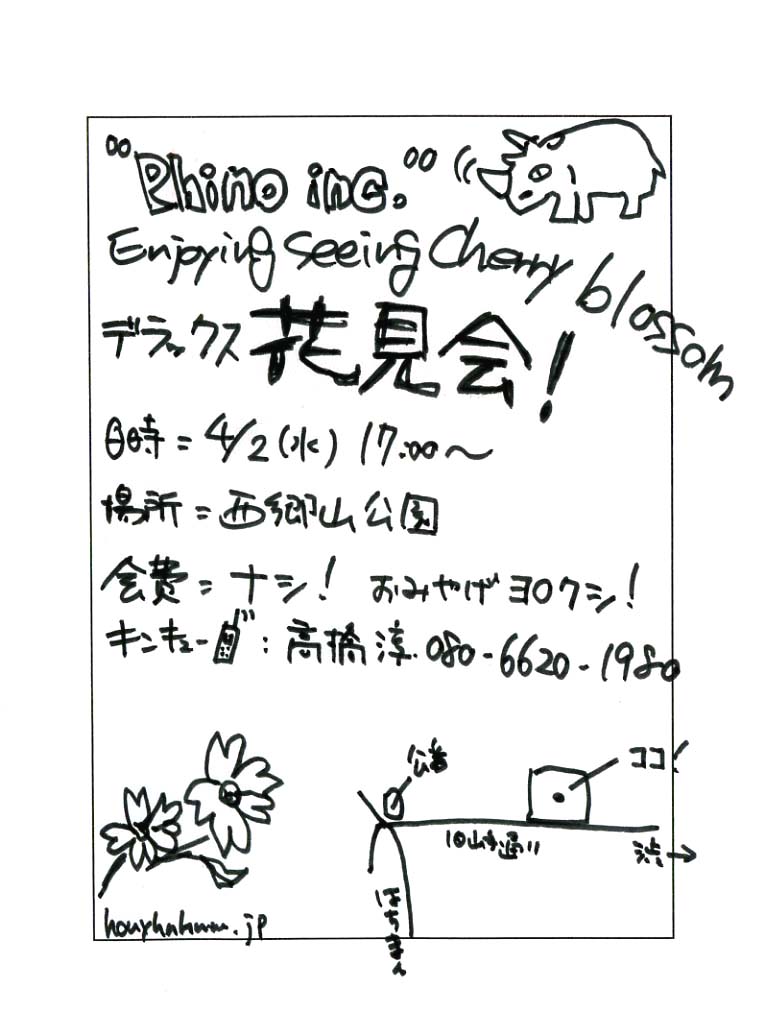 "Rhino inc."
Enjoying seeing Cherry blossom
デラックス 花見会!
日時 = 4/2(水) 17:00〜
場所 = 西郷山公園
会費 = ナシ! おみやげヨロクシ!
キンキュー : 高橋 淳. 080-6620-1980
交番
ココ!
旧山手通り
渋→
はちまん
houyhnhnm.jp